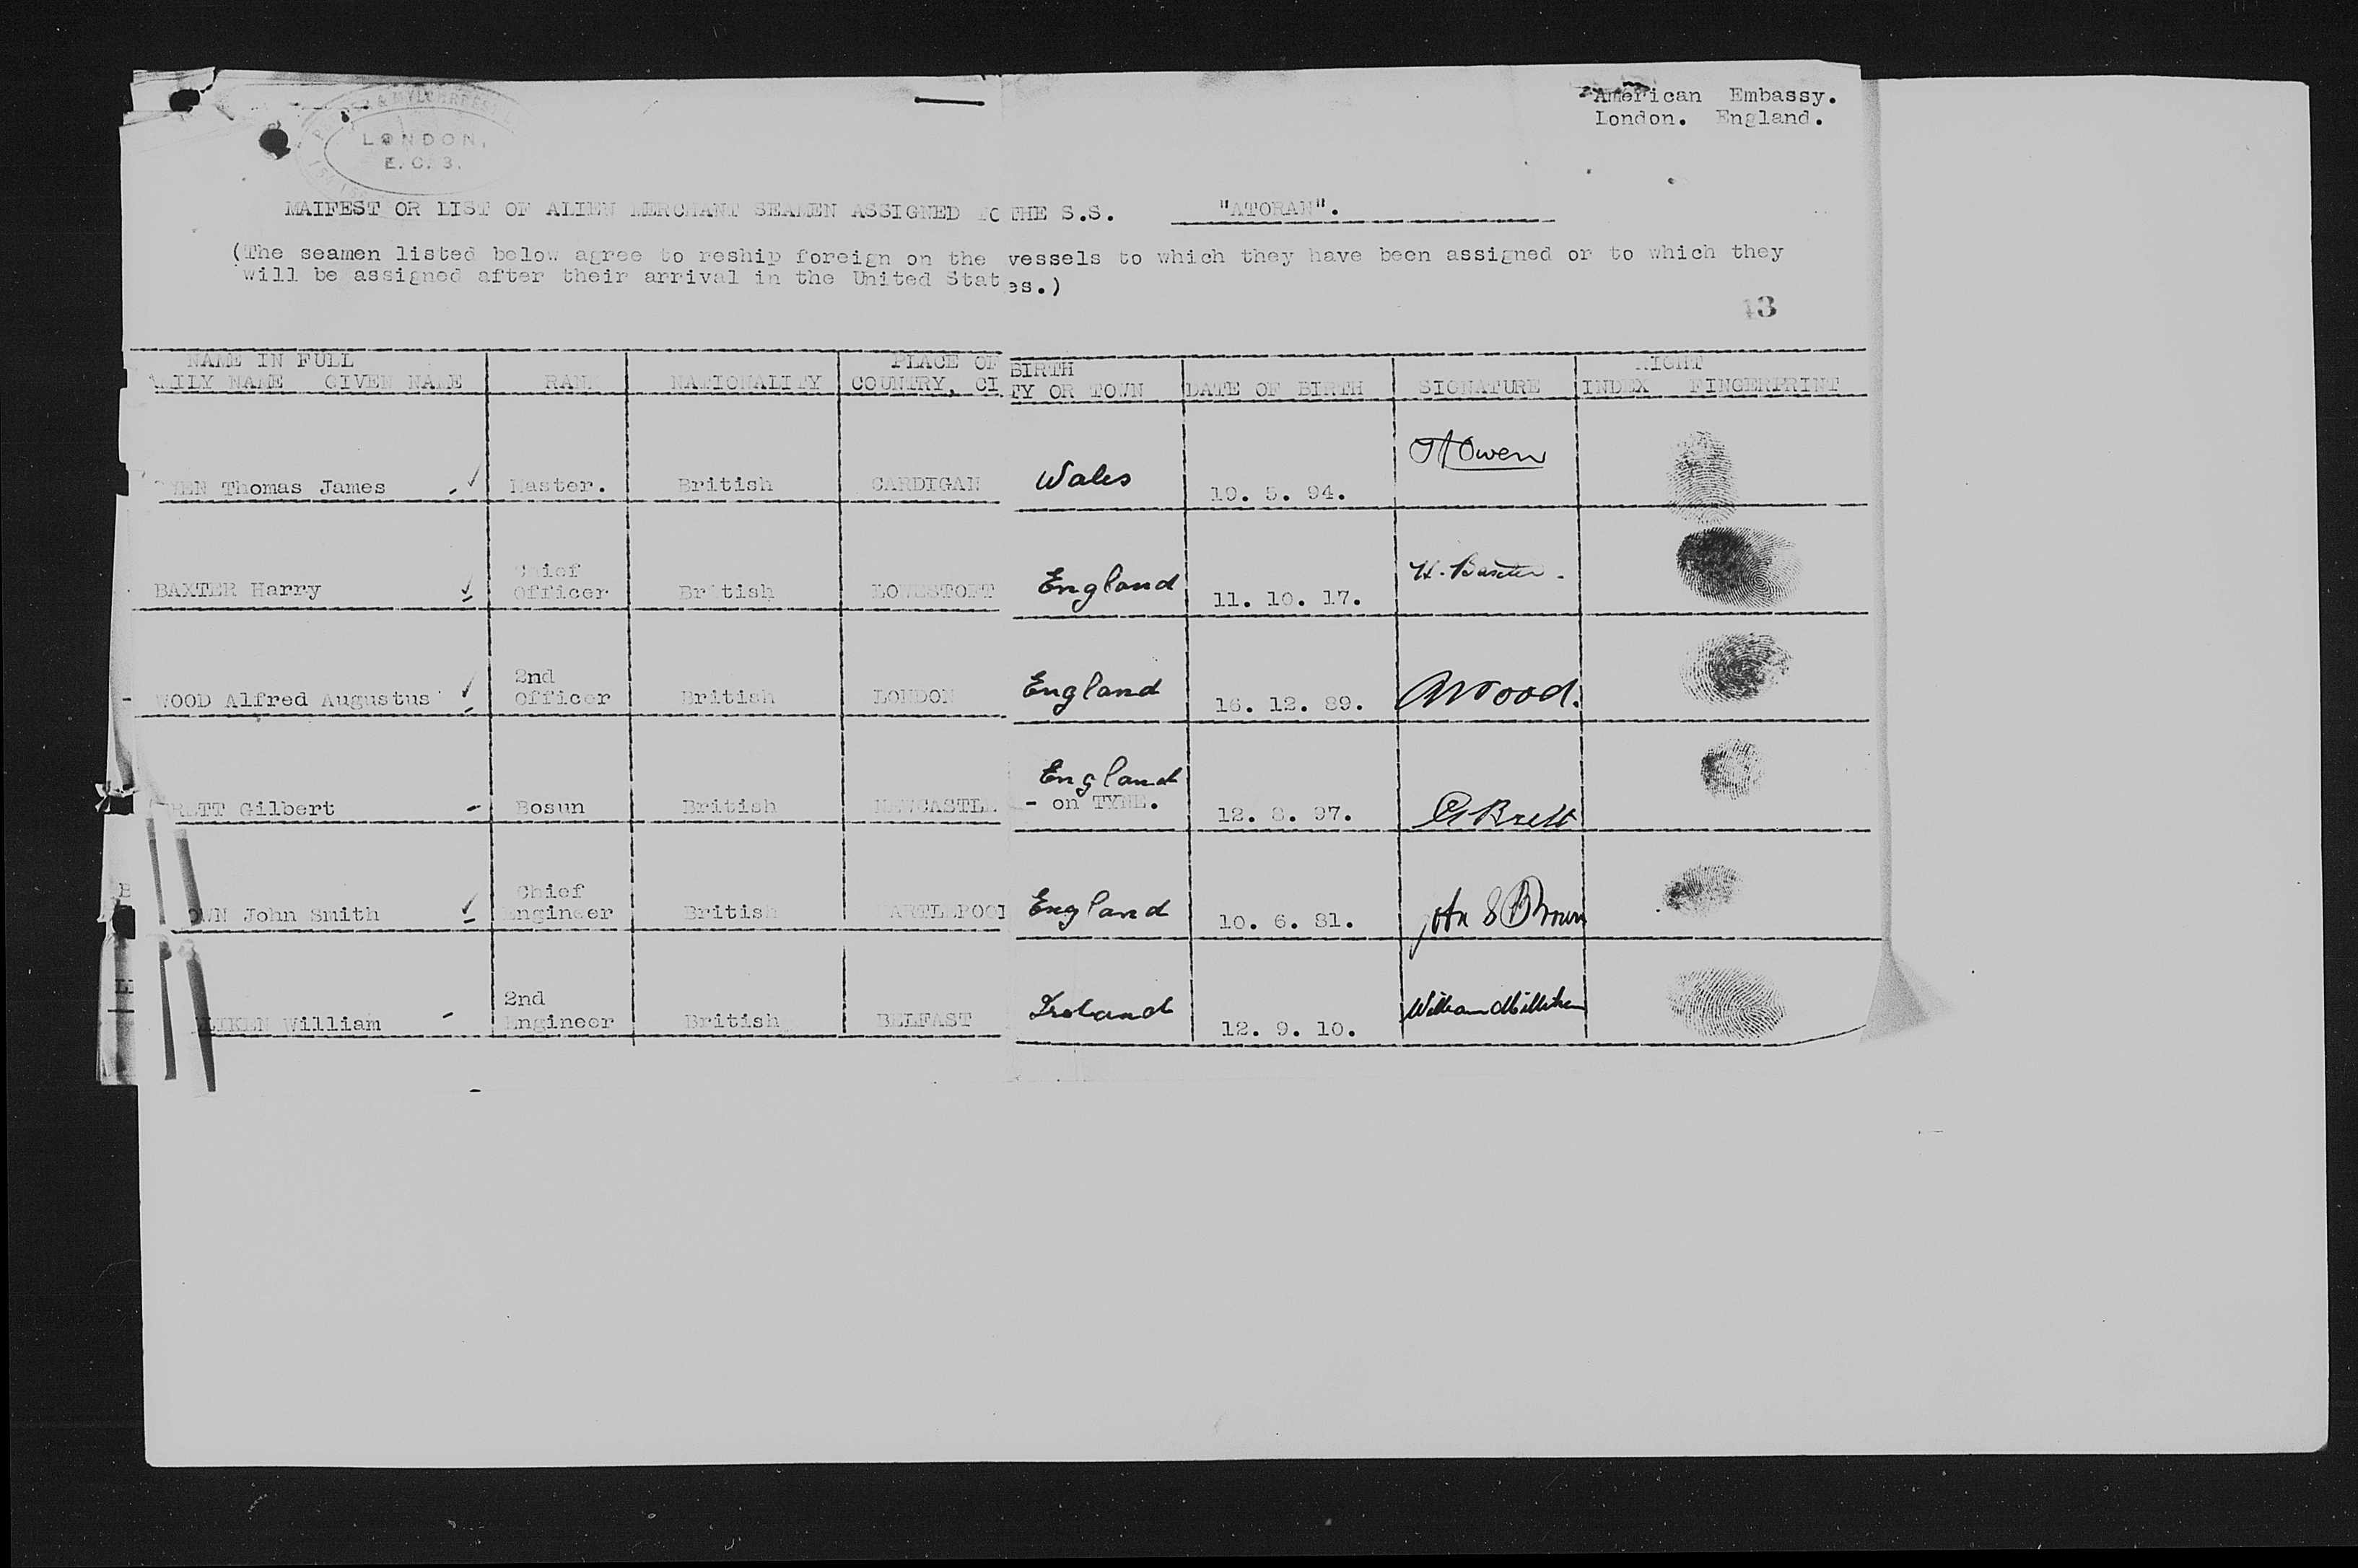 American Embassy.
London. England.
& MYLCHREEST
LONDON,
E.C.3.
MAIFEST OR LIST OF ALIEN MERCHANT SEAMEN ASSIGNED TO THE S.S. "ATORAN".
(The seamen listed below agree to reship foreign on the vessels to which they have been assigned or to which they
will be assigned after their arrival in the United States.)
3
NAME IN FULL PLACE OF BIRTH RIGHT
AMILY NAME GIVEN NAME RANK NATIONALITY COUNTRY, CITY OR TOWN DATE OF BIRTH SIGNATURE INDEX FINGERPRINT
Thomas James Master. British CARDIGAN Wales 5. 94. Owen
Chief
BAXTER Harry Officer British LOWESTOFT England 11. 10. 17. H. Baxter.
2nd
WOOD Alfred Augustus Officer British LONDON England 16. 12. 89. AWood.
England
BRETT Gilbert - Bosun British NEWCASTLE - on TYNE. 12. 8. 97. G Brett
Chief
BROWN John Smith Engineer British HARTLEPOOL England 10. 6. 81. John S Brown
2nd
LIKEN William - Engineer British BELFAST Ireland 12. 9. 10. William Milliken